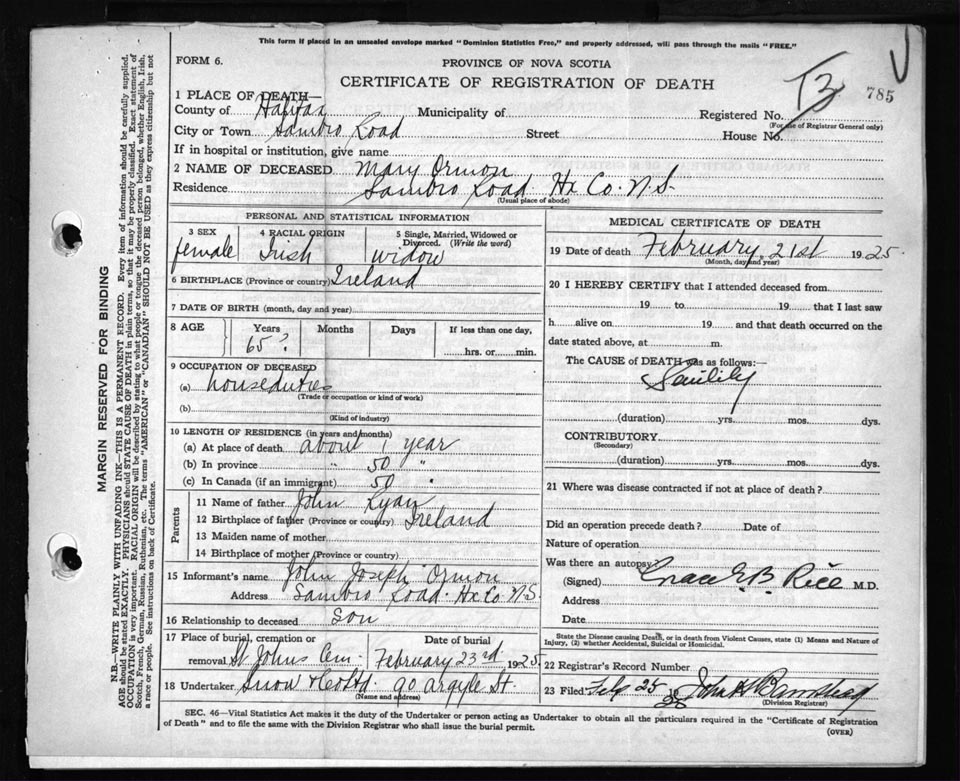 This form if placed in an unsealed envelope marked "Dominion Statistics Free," and properly addressed, will pass through the mails "FREE."
FORM 6.
PROVINCE OF NOVA SCOTIA
CERTIFICATE OF REGISTRATION OF DEATH
13
785
1 PLACE OF DEATH—
County of Halifax Municipality of Registered No.
(For use of Registrar General only)
City or Town Sambro Road Street House No.
If in hospital or institution, give name
2 NAME OF DECEASED Mary Ormon
Residence Sambro Road Hx Co. N.S.
(Usual place of abode)
PERSONAL AND STATISTICAL INFORMATION
3 SEX 4 RACIAL ORIGIN 5 Single, Married, Widowed or Divorced. (Write the word)
female Irish widow
6 BIRTHPLACE (Province or country) Ireland
7 DATE OF BIRTH (month, day and year)
8 AGE Years Months Days If less than one day,
65? hrs. or min.
9 OCCUPATION OF DECEASED
(a) house duties
(Trade or occupation or kind of work)
(b)
(Kind of industry)
10 LENGTH OF RESIDENCE (in years and months)
(a) At place of death about 1 year
(b) In province " 50 "
(c) In Canada (if an immigrant) 50 "
Parents
11 Name of father John Ryan
12 Birthplace of father (Province or country) Ireland
13 Maiden name of mother
14 Birthplace of mother (Province or country)
15 Informant's name John Joseph Ormon
Address Sambro Road. Hx Co. N.S.
16 Relationship to deceased Son
17 Place of burial, cremation or removal St Johns Cem Date of burial February 23rd 1925
18 Undertaker Snow & Co Ltd. 90 Argyle St.
(Name and address)
MEDICAL CERTIFICATE OF DEATH
19 Date of death February 21st 1925
(Month, day and year)
20 I HEREBY CERTIFY that I attended deceased from
19 to 19 that I last saw
h alive on 19 and that death occurred on the
date stated above, at m.
The CAUSE of DEATH was as follows:—
Senility
(duration) yrs. mos. dys.
CONTRIBUTORY
(Secondary)
(duration) yrs. mos. dys.
21 Where was disease contracted if not at place of death?
Did an operation precede death? Date of
Nature of operation
Was there an autopsy?
(Signed) Grace E.B. Rice M.D.
Address
Date
State the Disease causing Death, or in death from Violent Causes, state (1) Means and Nature of
Injury, (2) whether Accidental, Suicidal or Homicidal.
22 Registrar's Record Number
23 Filed Feb 25 John H Barnstead
(Division Registrar)
SEC. 46—Vital Statistics Act makes it the duty of the Undertaker or person acting as Undertaker to obtain all the particulars required in the "Certificate of Registration
of Death" and to file the same with the Division Registrar who shall issue the burial permit.
(OVER)
MARGIN RESERVED FOR BINDING
N.B.—WRITE PLAINLY WITH UNFADING INK—THIS IS A PERMANENT RECORD. Every item of information should be carefully supplied.
AGE should be stated EXACTLY. PHYSICIANS should STATE CAUSE OF DEATH in plain terms, so that it may be properly classified. Exact statement of
OCCUPATION is very important. RACIAL ORIGIN will be described by stating to what people or tongue the deceased person belonged, whether English, Irish,
Scotch, French, German, Russian, Ruthenian, etc. The terms "AMERICAN" or "CANADIAN" SHOULD NOT BE USED as they express citizenship but not
a race or people. See instructions on back of Certificate.